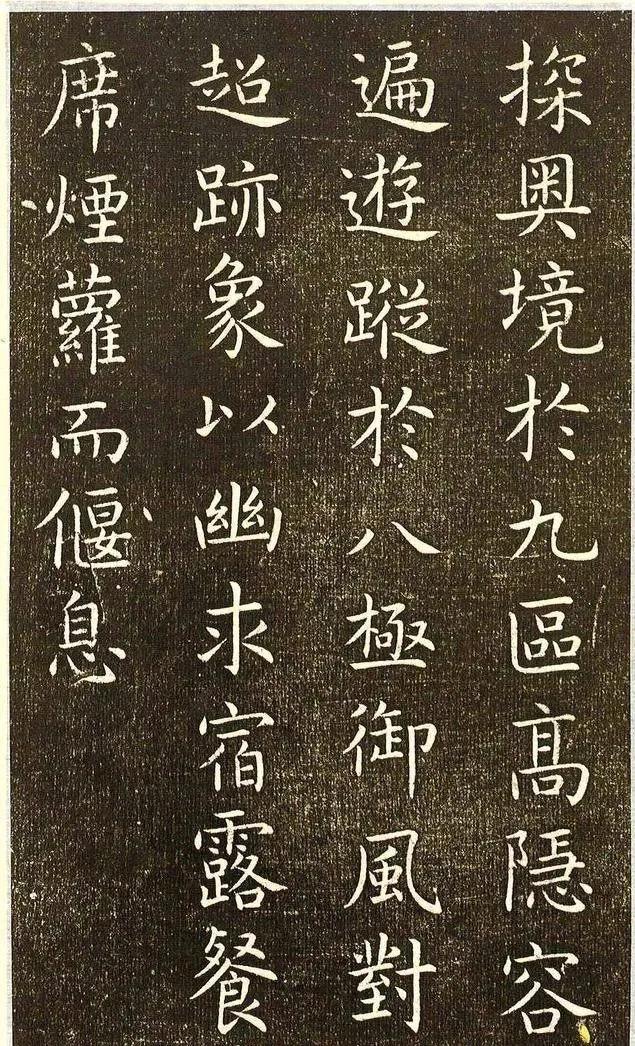 探奥境於九區高隱容
遍遊蹤於八極御風對
超跡象以幽求宿露餐
席煙蘿而偃息